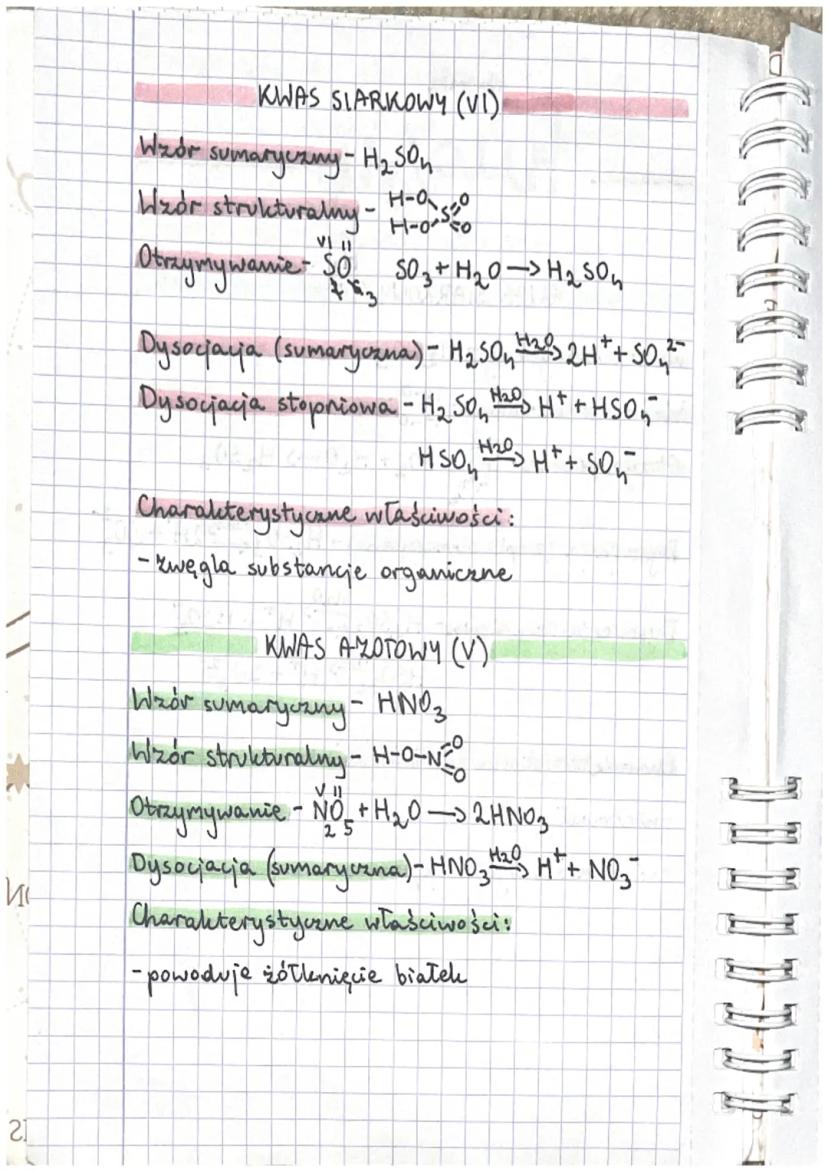 KWAS SIARKOWY (VI)
Wzór sumaryczny - H₂SO₄
Wzór strukturalny - H-O S=O
H-O =O
Otrzymywanie - SO₃ VI II SO₃ + H₂O → H₂SO₄
Dysocjacja (sumaryczna) - H₂SO₄ H₂O→ 2H⁺ + SO₄²⁻
Dysocjacja stopniowa - H₂SO₄ H₂O→ H⁺ + HSO₄⁻
HSO₄ H₂O→ H⁺ + SO₄⁻
Charakterystyczne właściwości:
- zwęgla substancje organiczne
KWAS AZOTOWY (V)
Wzór sumaryczny - HNO₃
Wzór strukturalny - H-O-N=O
=O
Otrzymywanie - N₂O₅ V II + H₂O → 2HNO₃
Dysocjacja (sumaryczna) - HNO₃ H₂O→ H⁺ + NO₃⁻
Charakterystyczne właściwości:
- powoduje żółknięcie białek